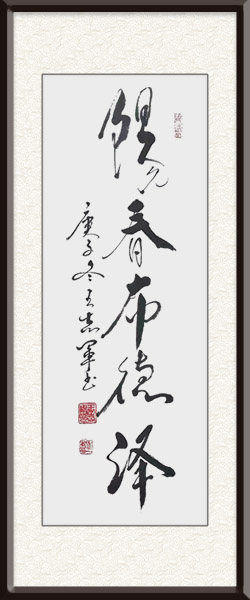 陽春布德泽
庚子冬王志军书